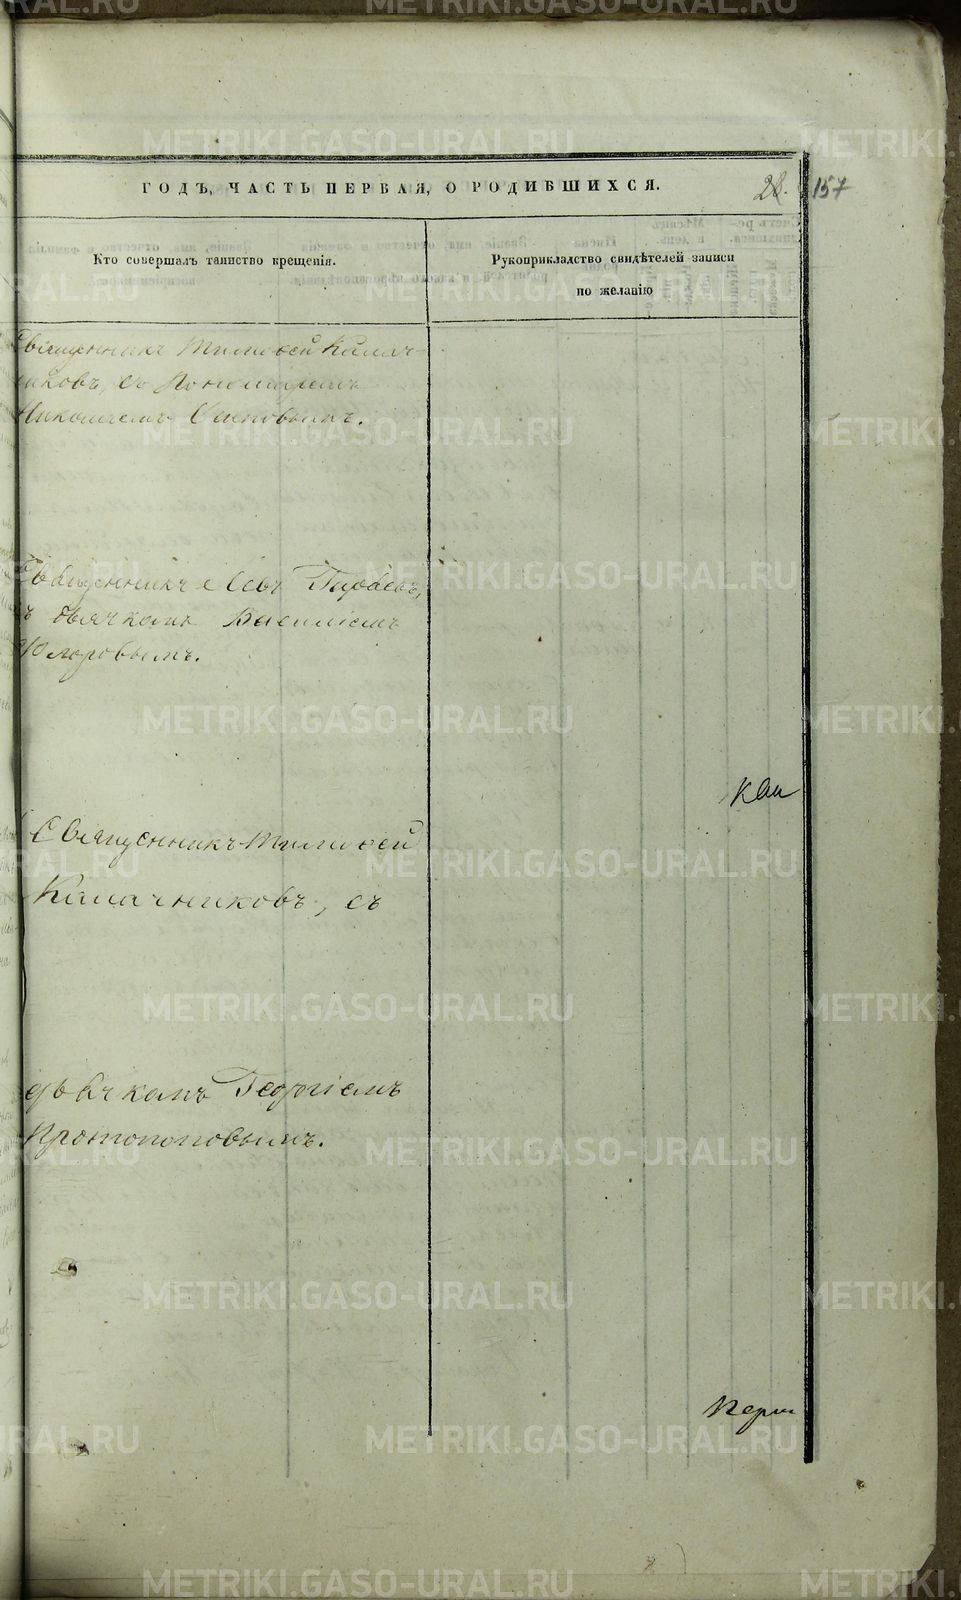 ГОДЪ, ЧАСТЬ ПЕРВАЯ, О РОДИВШИХСЯ.
28.
157
Кто совершалъ таинство крещенія.
Рукоприкладство свидѣтелей записи
по желанію
Священникъ Тимоѳей Калач-
никовъ, съ Пономаремъ
Николаемъ
Священникъ Левъ
съ дьячкомъ Василіемъ
Священникъ Тимоѳей
Калачниковъ, съ
дьячкомъ Георгіемъ
Протопоповымъ.
METRIKI.GASO-URAL.RU